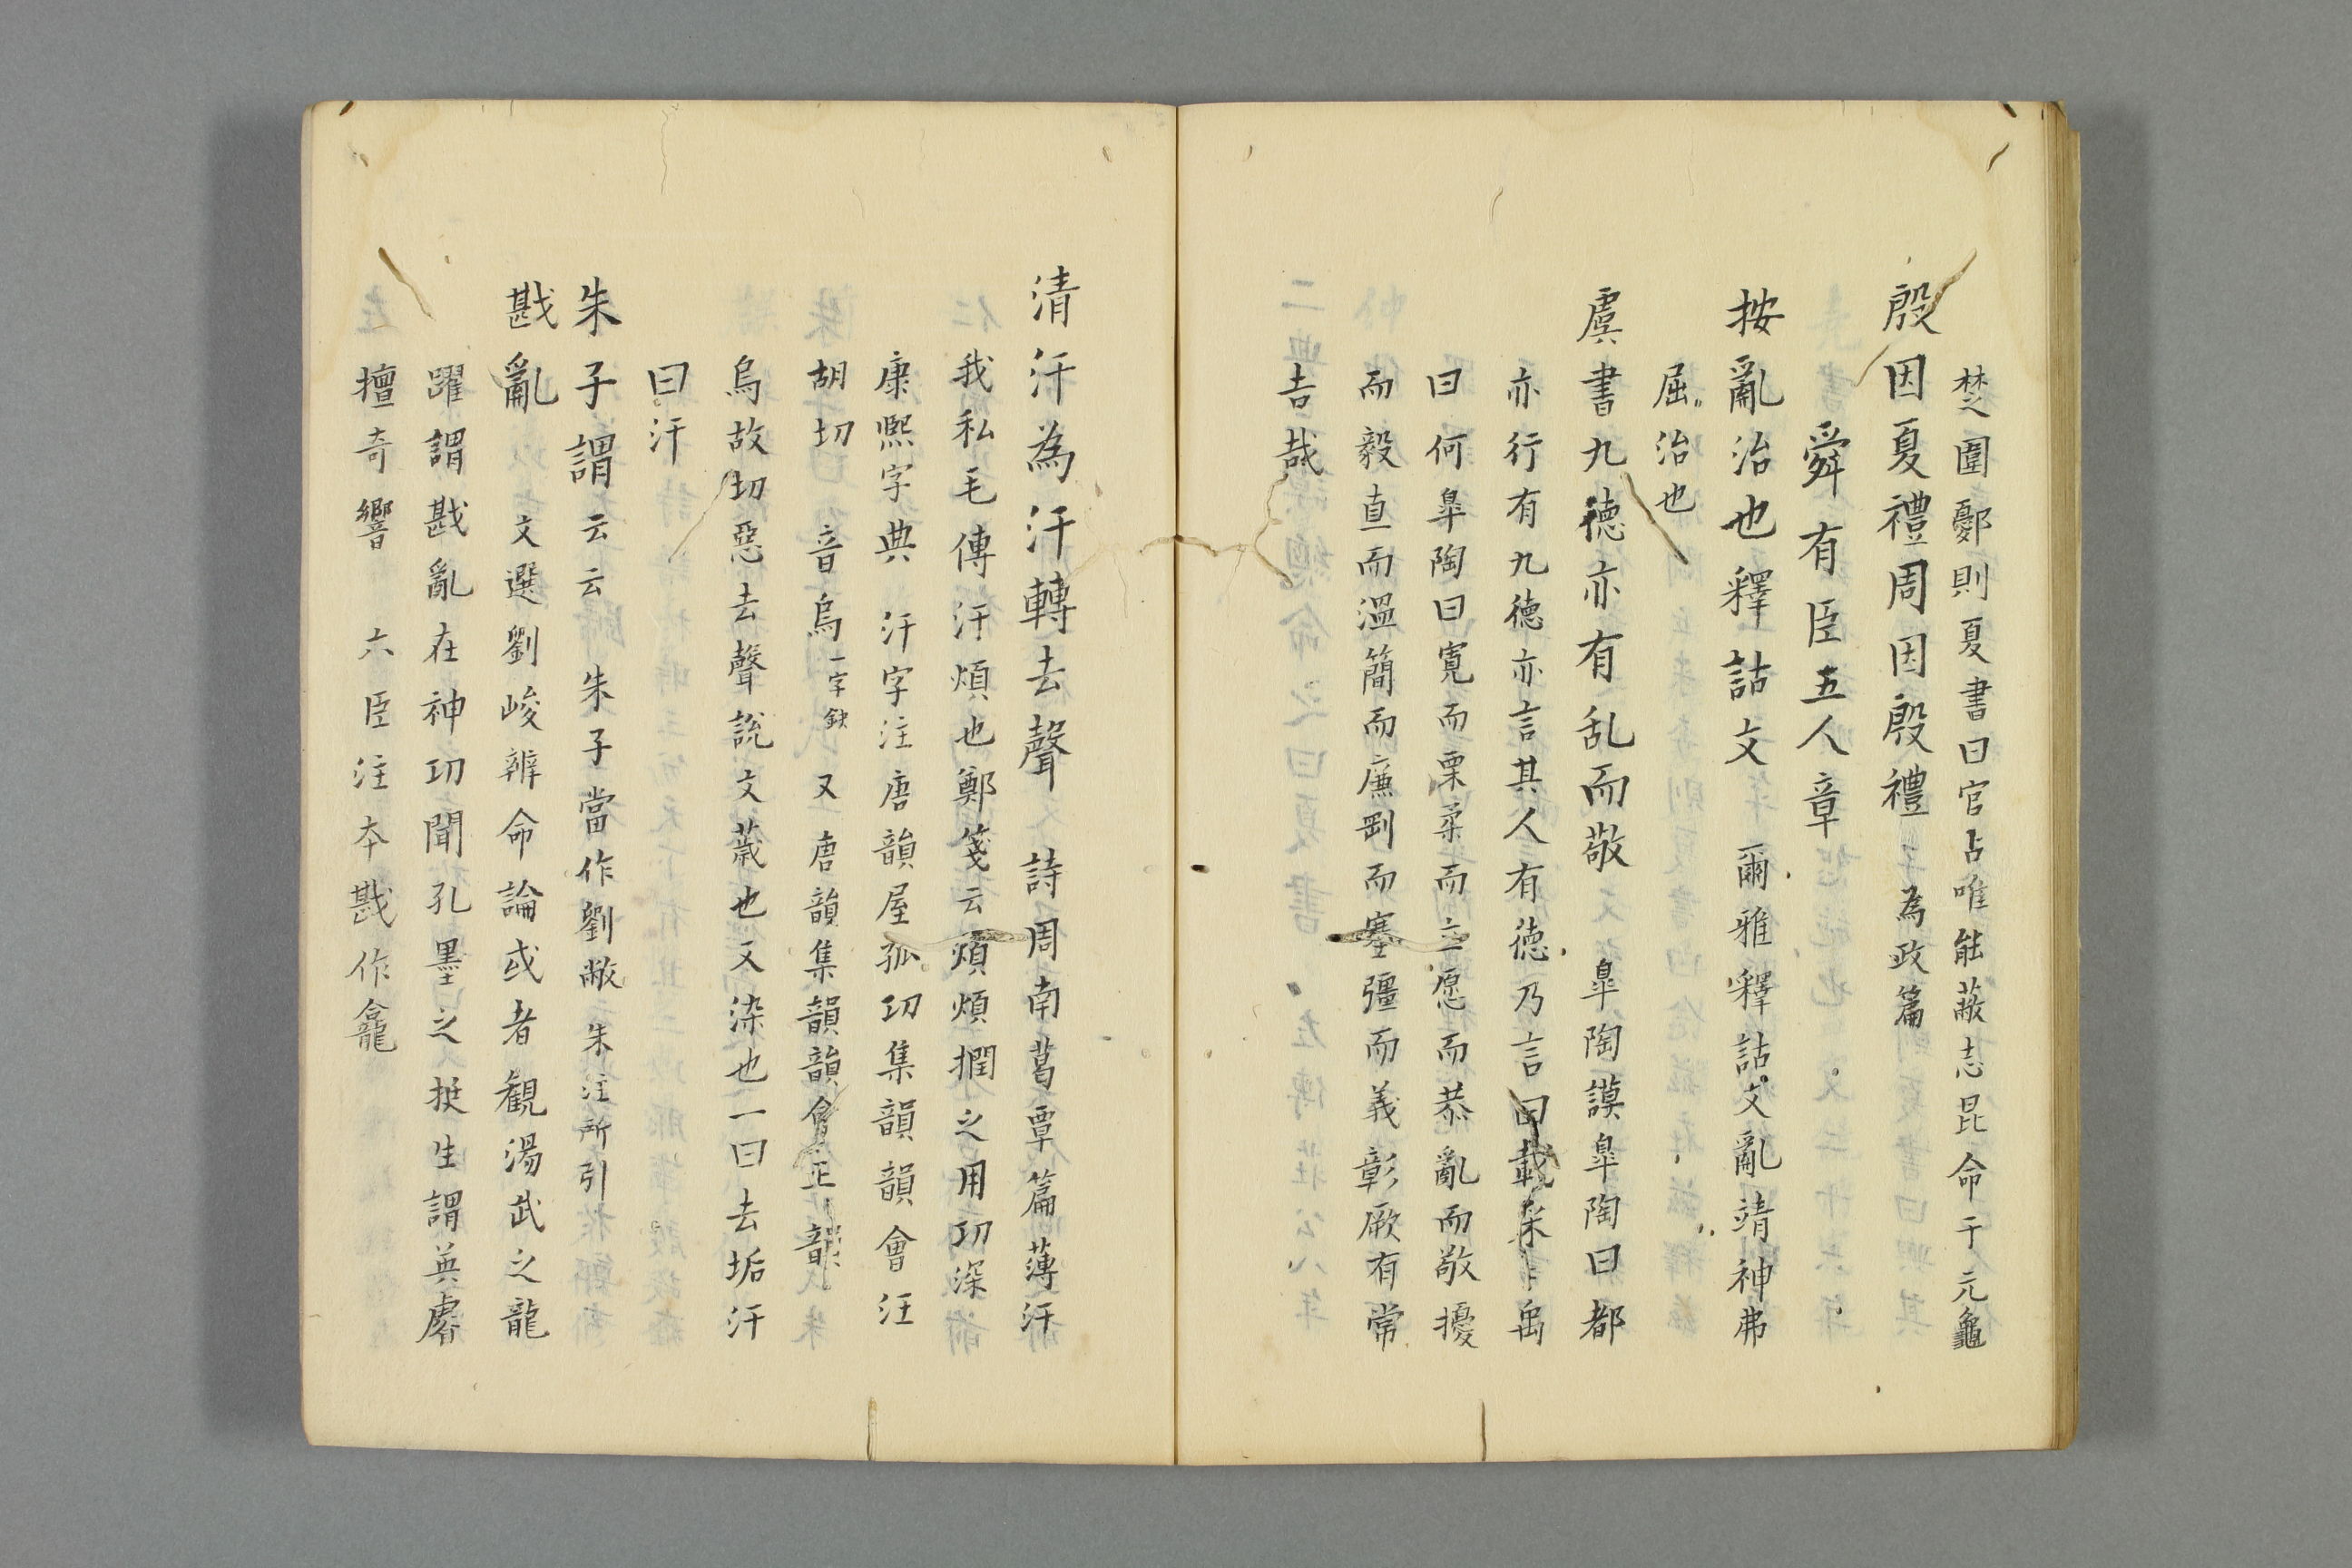 楚圍鄾則夏書曰官占唯能蔽志昆命于元龜
殷因夏禮周因殷禮 為政篇
舜有臣五人章
按亂治也釋詁文 爾雅釋詁文亂靖神弗
屈治也
虞書九德亦有乱而敬 皐陶謨皐陶曰都
亦行有九德亦言其人有德乃言曰載采采禹
曰何皐陶曰寬而栗柔而立愿而恭亂而敬擾
而毅直而溫簡而廉剛而塞彊而義彰厥有常
吉哉
清汙為汙轉去聲 詩周南葛覃篇薄汙
我私毛傳汙煩也鄭箋云煩煩撋之用功深
康熙字典 汙字注唐韻屋孤切集韻韻會汪
胡切 音烏一字缺 又唐韻集韻韻會正韻
烏故切惡去聲說文薉也又染也一曰去垢汙
曰汙
朱子謂云云 朱子當作劉敞 朱注所引
戡亂 文選劉峻辨命論或者觀湯武之龍
躍謂戡亂在神功聞孔墨之挺生謂英睿
擅奇響 六臣注本戡作龕